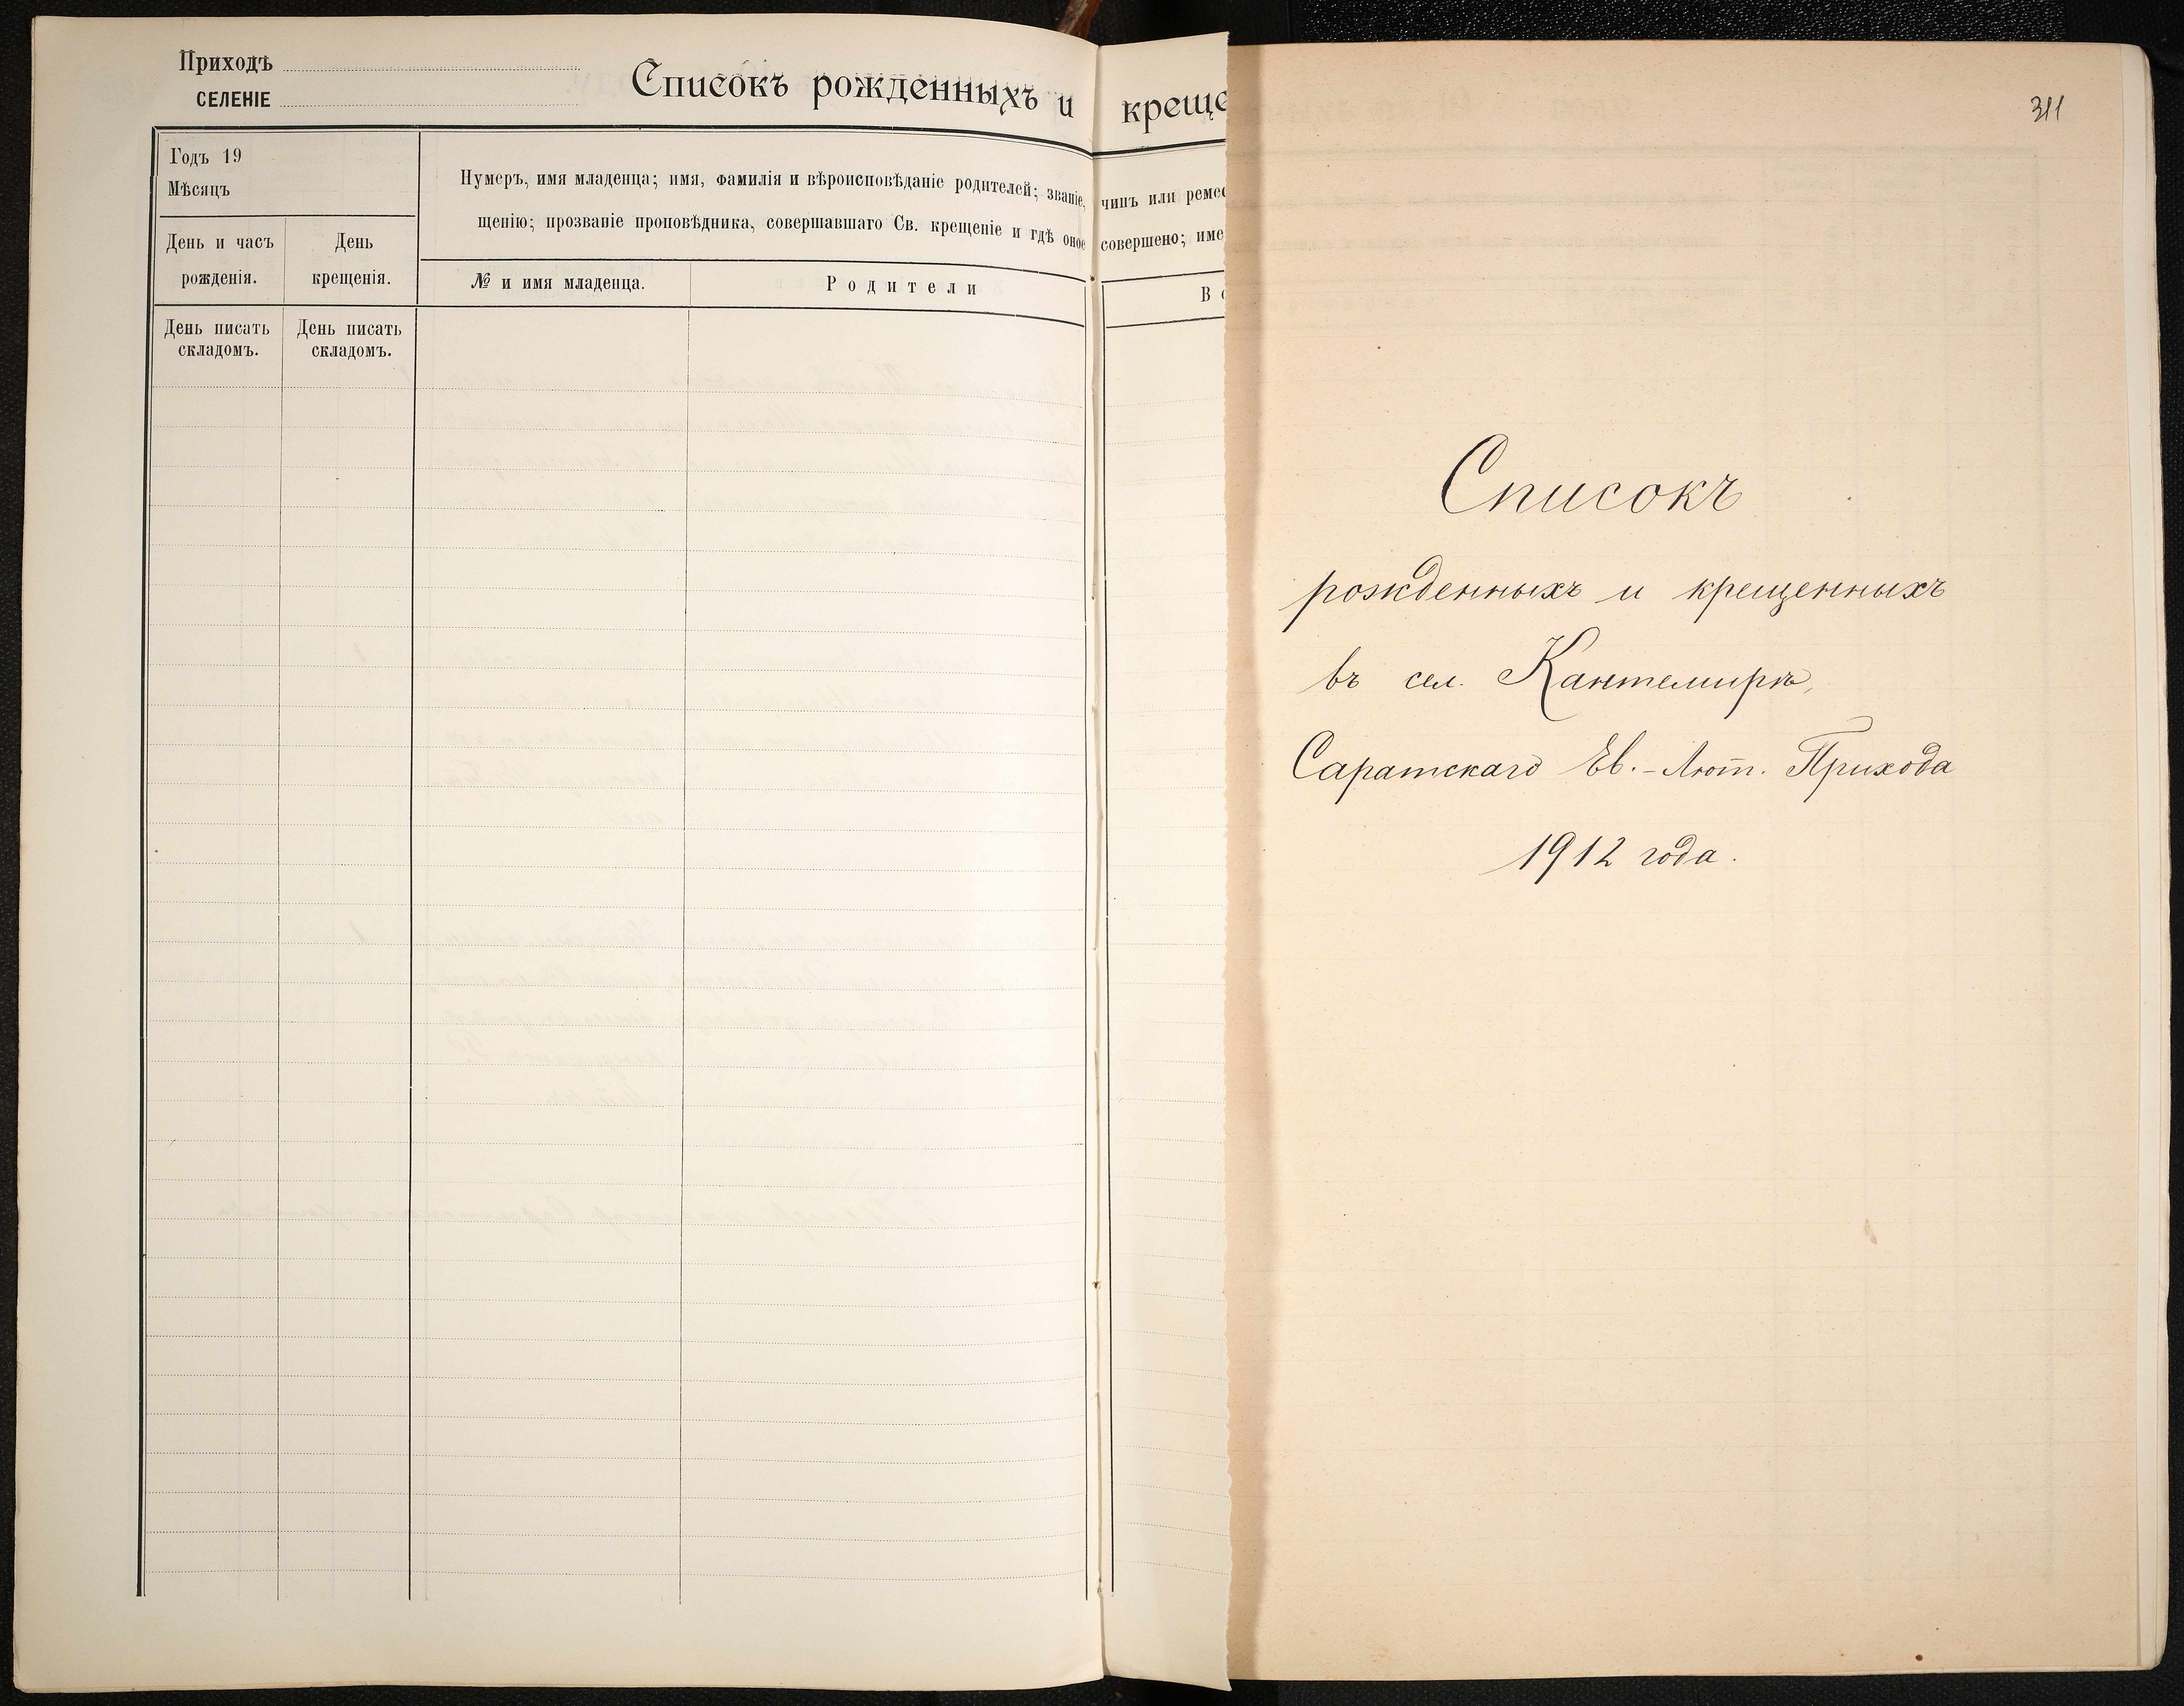 Приходъ
СЕЛЕНІЕ
Списокъ рожденныхъ и креще
Годъ 19
Мѣсяцъ
Нумеръ, имя младенца; имя, фамилія и вѣроисповѣданіе родителей; званіе, чинъ или ремес
щенію; прозваніе проповѣдника, совершавшаго Св. крещеніе и гдѣ оное совершено; име
День и часъ рожденія.
День крещенія.
№ и имя младенца.
Родители
В
День писать складомъ.
День писать складомъ.
311
Списокъ
рожденныхъ и крещенныхъ
въ сел. Кантемиръ,
Саратскаго Ев.-Лют. Прихода
1912 года.